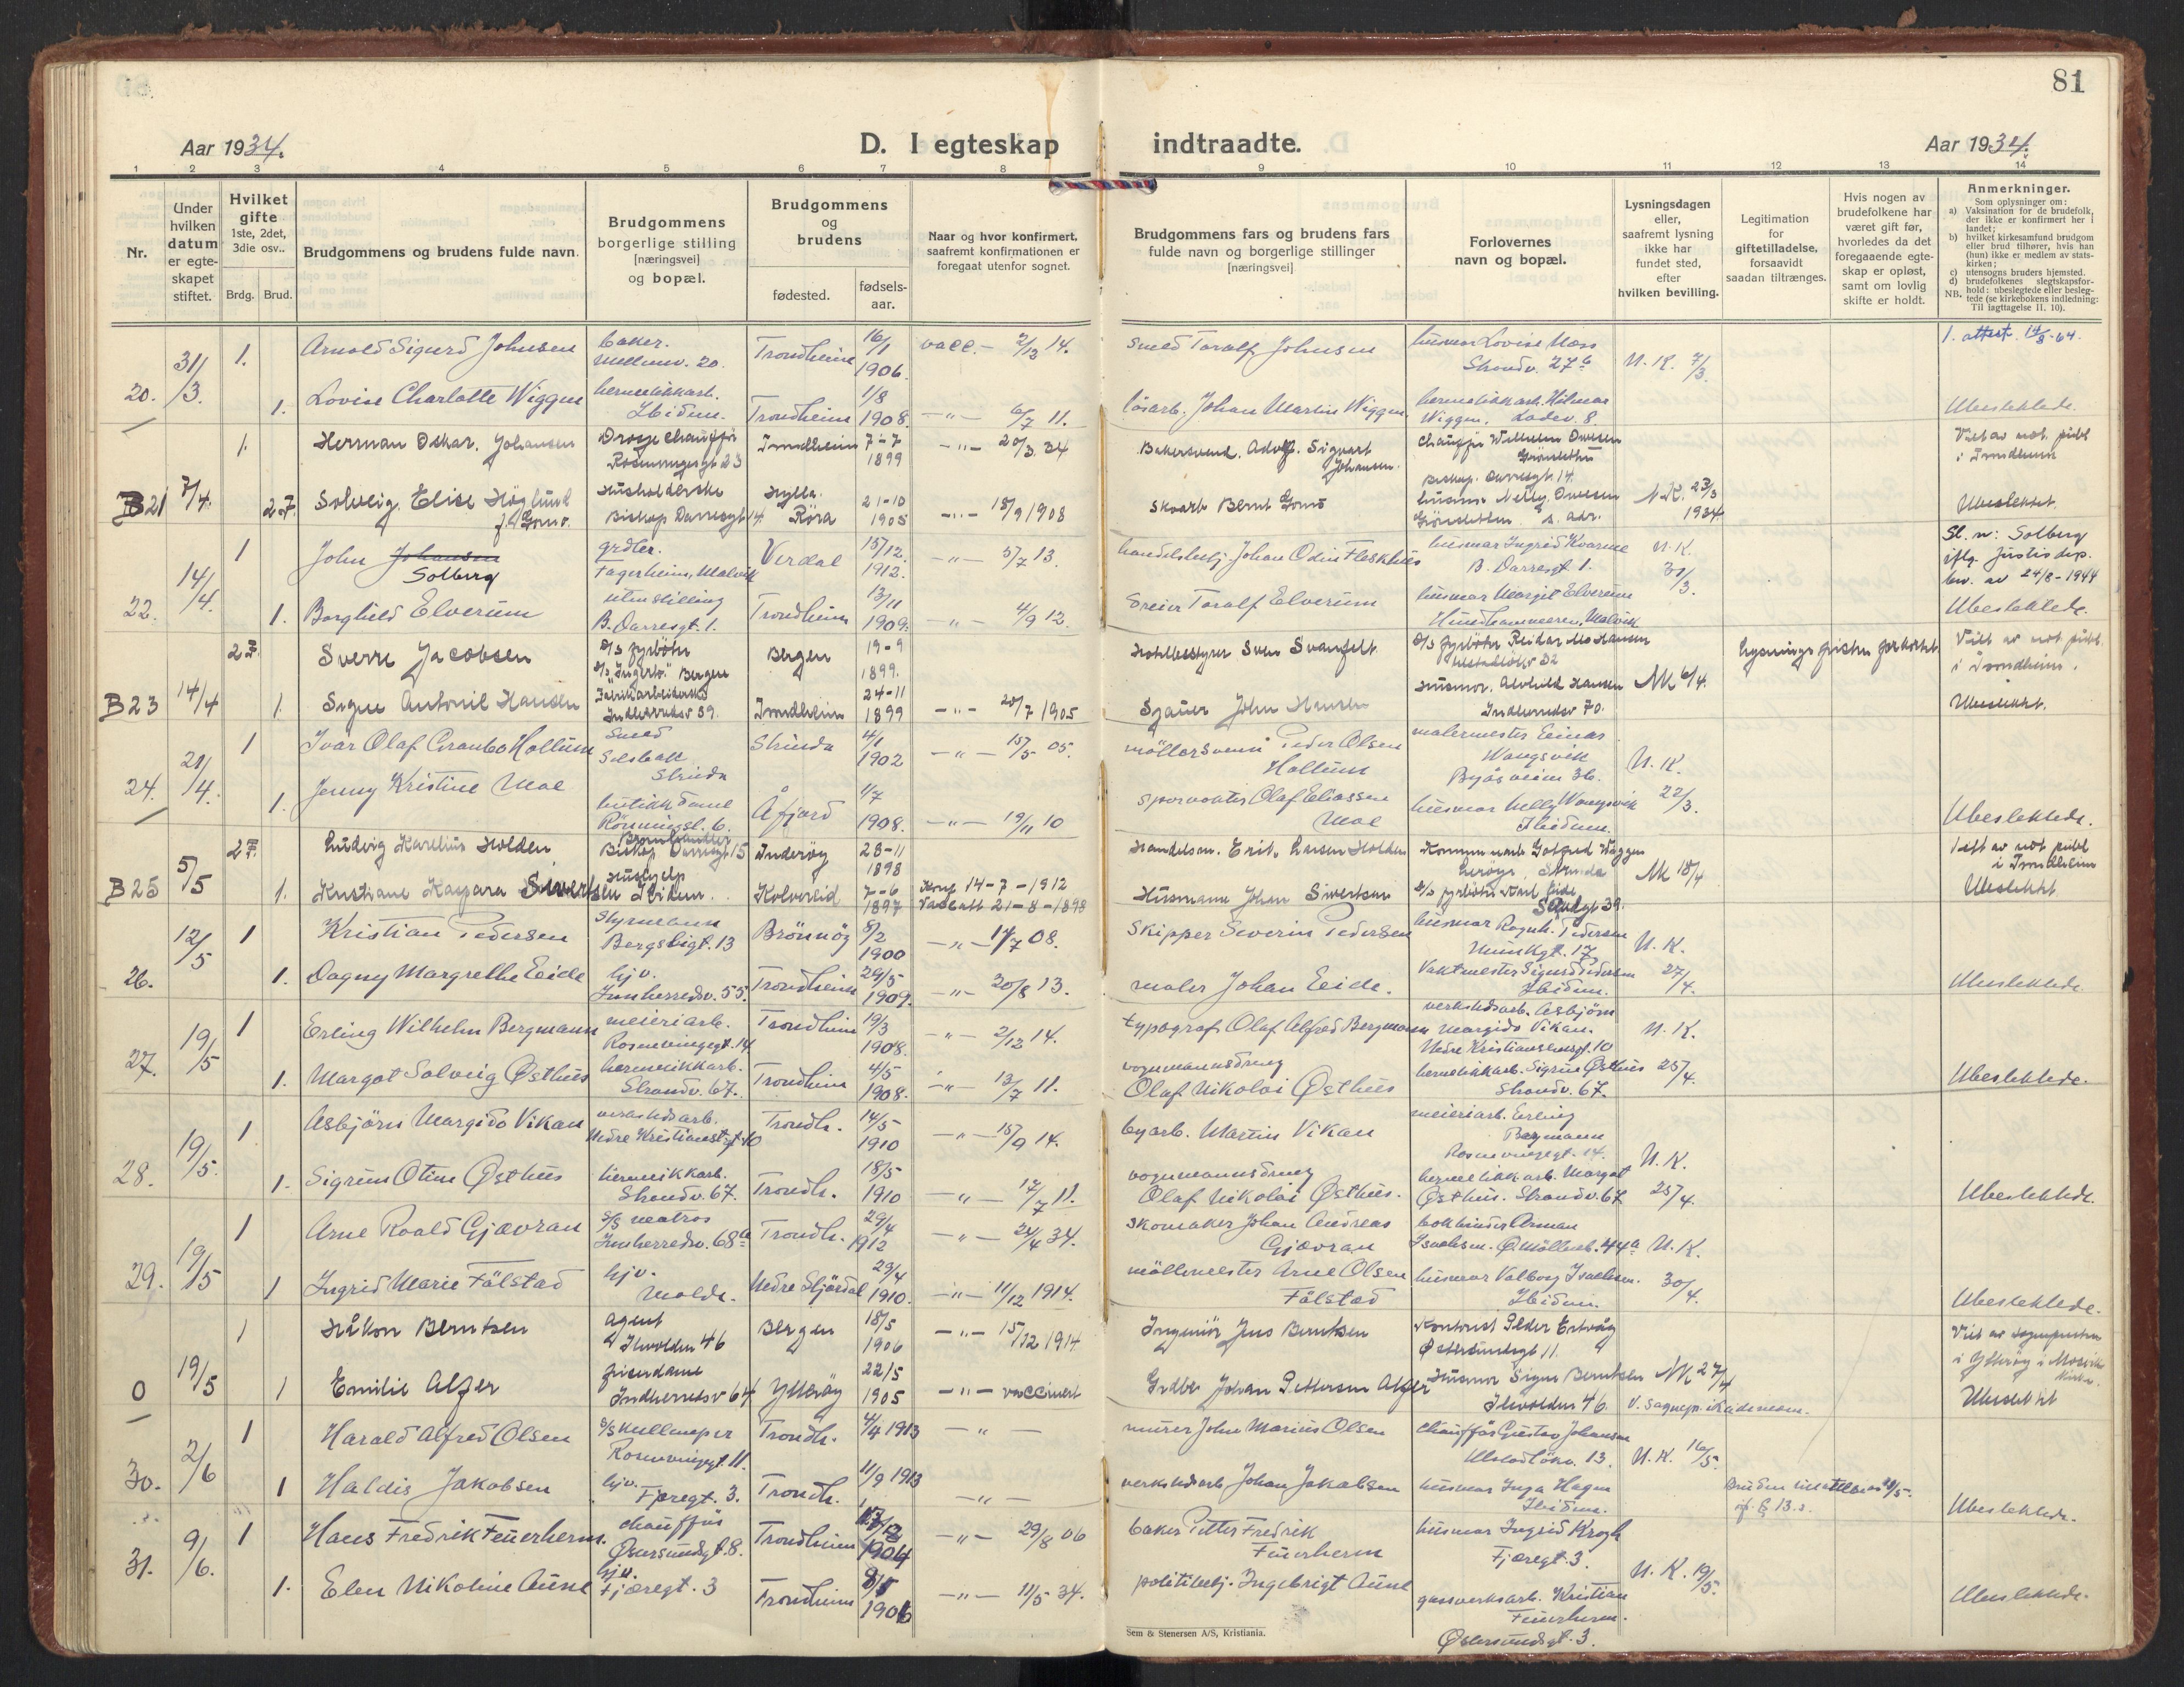 81
Aar 1934.
D. I egteskap indtraadte.
Aar 1934.
1 2 3 4 5 6 7 8 9 10 11 12 13 14
Nr.
Under hvilken datum er egteskapet stiftet.
Hvilket gifte 1ste, 2det, 3die osv..
Brdg. Brud.
Brudgommens og brudens fulde navn.
Brudgommens borgerlige stilling [næringsvei] og bopæl.
Brudgommens og brudens
fødested.
fødsels-aar.
Naar og hvor konfirmert, saafremt konfirmationen er foregaat utenfor sognet.
Brudgommens fars og brudens fars fulde navn og borgerlige stillinger [næringsvei]
Forlovernes navn og bopæl.
Lysningsdagen eller, saafremt lysning ikke har fundet sted, efter hvilken bevilling.
Legitimation for giftetilladelse, forsaavidt saadan tiltrænges.
Hvis nogen av brudefolkene har været gift før, hvorledes da det foregaaende egteskap er opløst, samt om lovlig skifte er holdt.
Anmerkninger.
Som oplysninger om:
a) Vaksination for de brudefolk, der ikke er konfirmert her i landet;
b) hvilket kirkesamfund brudgom eller brud tilhører, hvis han (hun) ikke er medlem av statskirken;
c) utensogns bruders hjemsted.
d) brudefolkenes slegtskapsforhold: ubeslegtede eller beslegtede (se kirkebokens indledning: Til iagttagelse II. 10).
NB.
20. 31/3. 1. Arnold Sigurd Johnsen baker. Mellomv. 20. Trondheim 16/1 1906. vacc. - 2/12 14. smed Toralf Johnsen husmor Lovise Moss Strandv. 27b N. K. 7/3. 1. attest. 14/8-64.
1. Lovise Charlotte Wiggen hermetikkarb. Ibidem. Trondheim 1/8 1908. -"- 6/7 11. løsarb. Johan Martin Wiggen. hermetikkarb. Hilmar Wiggen. Ladev. 8. Ubeslektede.
B21 7/4. 1. Herman Oskar. Johansen Drosjechauffør Rosenborgsgt 23 Trondheim 7-7 1899 -"- 20/3. 34 Bakersvend. Adolf. Sigvart Johansen. Chauffør Wilhelm Owesen Biskop. Darresgt. 14. Viet av not. publ. i Trondheim
2 Solveig. Elise Höglund Husholderske Biskop Darresgt 14. Hylla. Röra 21-10 1905 -"- 18/9 1908 Skoarb Bernt husmor Nelly. Owesen s. adr. N.K. 23/3 1934 Ubeslektet.
22. 14/4. 1 John Johansen Solberg grdbr. Fagerheim, Malvik Verdal 15/12. 1912. -"- 5/7 13. handelsbetj. Johan Odin Fleskhus husmor Ingrid Kvarme B. Darresgt. 1. N. K. 31/3. Sl. n: Solberg iflg. Justisdep. bev. av 24/8-1944
1. Borghild Elverum uten stilling B. Darresgt. 1. Trondheim 13/11 1909. -"- 4/9 12. Toralf Elverum husmor Margit Elverum Hundhammeren, Malvik Ubeslektede.
B23 14/4 2 Sverre Jacobsen S/s fyrböter Bergen Bergen 19-9 1899. Hotellbestyrer Sven Svanfelt S/s fyrböter Reidar Hansen NK 6/4. Lysningsfristen forkortet Viet av not. publ. i Trondheim.
1. Signe Antonie Hansen Fabrikarbeiderske Indherredsv 39. Trondheim 24-11 1899 -"- 20/7 1905 Sjauer John Hansen Husmor. Alvhild Hansen Indherredsv 70. Ubeslekt.
24. 21/4. 1 Ivar Olaf Granbo Hollum Smed Selsbakk Strinda Strinda 4/1 1902 -"- 15/5 05. möllersvenn Peder Olsen Hollum malermester Einar Wangsvik Byåsveien 36. N. K. 22/3.
1. Jenny Kristine Moe butikkdame Rönningsl. 6. Åfjord 1/7 1908. -"- 19/11 10 sporvokter Olaf Eliassen Moe husmor Nelly Wangsvik Ibidem. Ubeslektede.
B25 5/5 2 Ludvig Karelius Holden Biskop Darresgt 15 Inderöy 28-11 1898 Handelsm. Erik. Larsen Holden Kommunearb Gotfred Wiggen Strinda NK 18/4 Viet av not publ i Trondheim
1. Kristiane Kaspara Sivertsen Hushjelp Ibidem. Kolvereid 7-6 1897 Konf 14-7-1912 Vaksatt 21-8-1898 Husmann Johan Sivertsen S/s fyrböter Karl Eide Sandgt 39. Ubeslekt
26. 12/5 1 Kristian Pedersen Styrmann Bergsligt. 13 Brönnöy 8/2 1900 -"- 14/7 08. Skipper Severin Pedersen husmor Ragnh. Pedersen Munkgt. 17 N. K. 27/4.
1. Dagny Margrethe Eide hjv. Innherredsv. 55. Trondheim 29/5 1909. -"- 20/8 13. maler Johan Eide. Vaktmester Sigurd Pedersen Ibidem. Ubeslektede.
27. 19/5 1 Erling Wilhelm Bergmann meieriarb. Rosenvingegt. 14 Trondheim 19/3 1908. -"- 2/12 14. typograf Olaf Alfred Bergmann verkstedsarb. Asbjörn Margido Vikan. Nedre Kristianstensgt. 10 N. K. 25/4.
1. Margot Solveig Østhus hermetikkarb. Strandv. 67. Trondheim 4/5 1908. -"- 13/7 11. vognmannsdreng Olaf Nikolai Østhus hermetikkarb. Sigrun Østhus Strandv. 67. Ubeslektede.
28. 19/5. 1 Asbjörn Margido Vikan verkstedsarb. Nedre Kristianst.gt. 10 Trondh. 14/5 1910 -"- 15/9 14. byarb. Martin Vikan meieriarb. Erling Bergmann Rosenvingegt. 14. N. K. 25/4.
1. Sigrun Otine Østhus hermetikkarb. Strandv. 67. Trondh. 18/5 1910 -"- 17/7 11. vognmannsdreng Olaf Nikolai Østhus. hermetikkarb. Margot Østhus. Strandv. 67 Ubeslektede.
29. 19/5 1 Arne Roald Gjævran S/S matros Innherredsv. 68a Trondh. 29/4 1912 -"- 24/4 34. skomaker Johan Andreas Gjævran bokbinder Arman Isachsen. Ø. Möllenb. 44a N. K. 30/4.
1 Ingrid Marie Fålstad hjv. Molde. Nedre Stjørdal 29/4 1910. -"- 11/12 1914. möllemester Arne Olsen Fålstad husmor Valborg Isachsen. Ibidem. Ubeslektede.
0 19/5 1 Håkon Berntsen agent Ilevolden 46 Bergen 18/5 1906 -"- 15/12 1914 Ingeniör Jens Berntsen Kontorist Peder Östersundsgt 11. NK 27/4 Viet av sognepresten i Ytteröy i Mosvik kirke.
1 Emilie Alfer frisördame Indherredsv 64 Ytteröy 22/5 1905 -"- vaccinert Grdbr. Johan Pettersen Alfer Husmor Signe Berntsen Ilevolden 46. Ubeslektet
30. 2/6 1 Harald Alfred Olsen S/S kullemper Rosenvingegt. 11. Trondh. 4/4 1913 -"- murer John Marius Olsen chauffør Gustav Johansen Ulstadløkv. 13. N. K. 16/5.
1 Haldis Jakobsen hjv. Fjæregt. 3. Trondh. 11/9 1913 -"- verkstedarb Johan Jakobsen husmor Inga Hagen Ibidem. Ubeslektede.
31. 9/6. 1 Hans Fredrik Feuerherm. chauffør Østersundsgt. 8. Trondheim 1904 -"- 29/8 06 baker Petter Fredrik Feuerherm husmor Ingrid Krogh Fjæregt. 3. N. K. 19/5.
1. Elen Nikoline Aune hjv. Fjæregt. 3 Trondheim 8/5 1906 -"- 11/5 34. politibetj. Ingebrigt Aune gassverksarb. Kristian Feuerherm. Østersundsgt. 3. Ubeslektede.
Sem & Stenersen A/S, Kristiania.